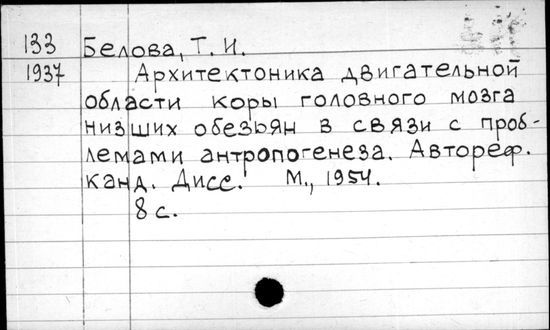 133 Белова, Т. И.
1937 Архитектоника двигательной
области коры головного мозга
низших обезьян в связи с проб-
лемами антропогенеза. Автореф.
канд. Дисс. М., 1954.
8 с.